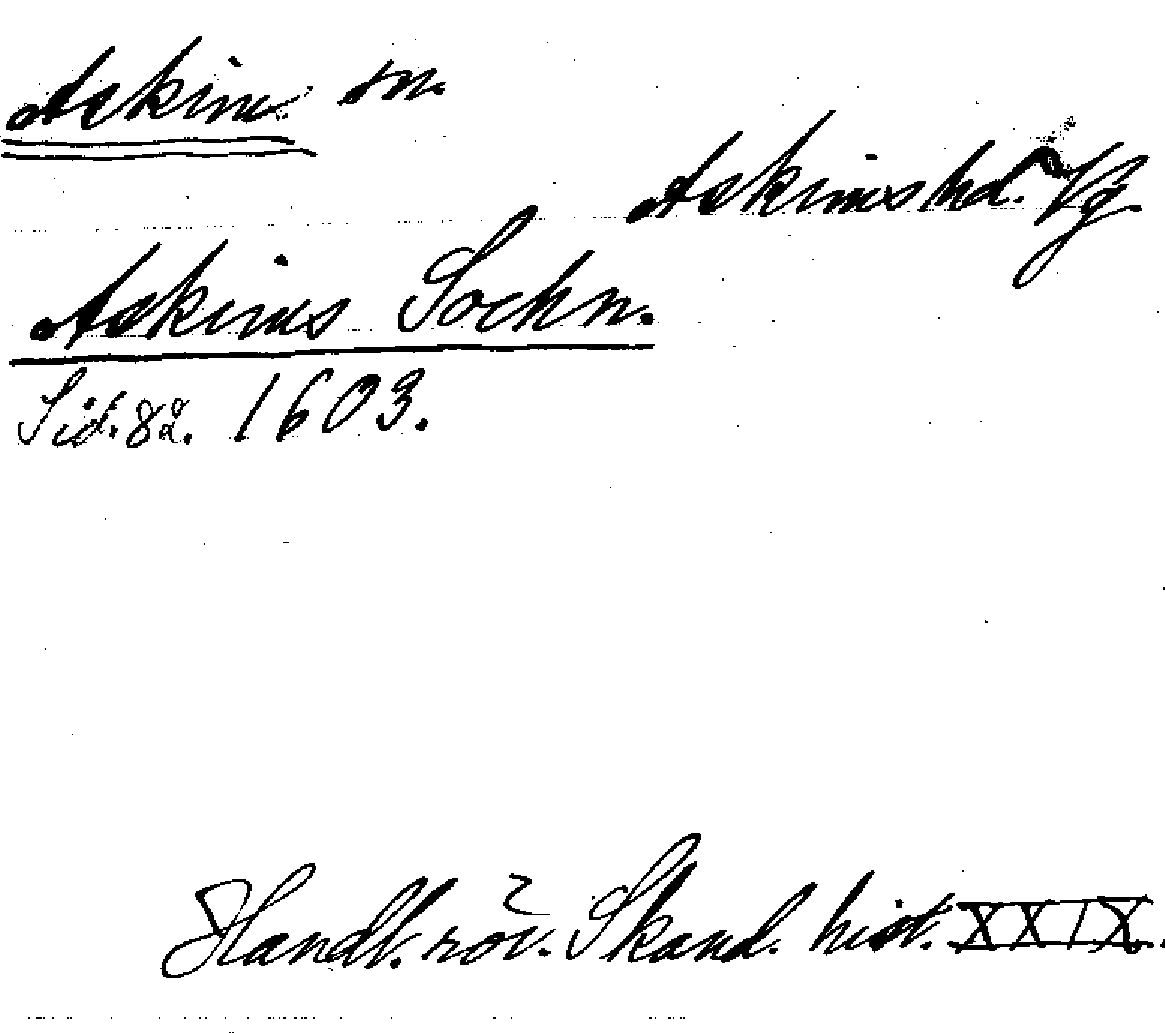 Askim sn.
Askims hd. Vg.
Askims Sochn.
Sid. 82. 1603.
Handl. rör. Skand. hist. XXIX.